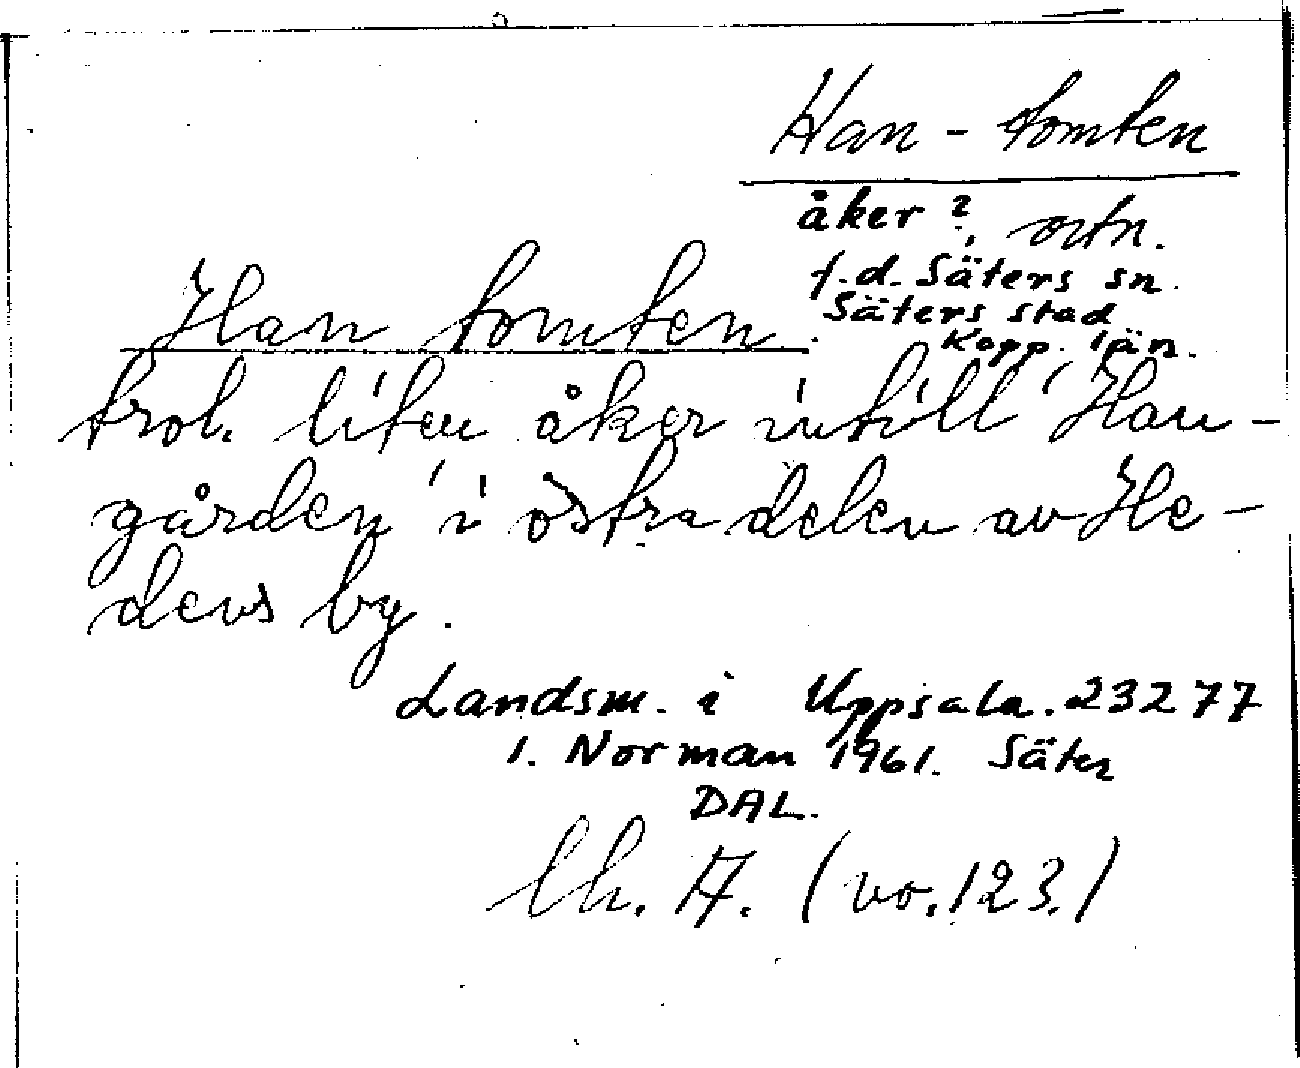 Han-tomten
åker?, ortn.
f.d. Säters sn.
Säters stad
Kopp. län.
Han tomten.
trol. liten åker intill 'Han-
gården' i östra delen av He-
dens by.
Landsm. i Uppsala. 23277
I. Norman 1961. Säter
DAL.
lh. A. (vo. 123.)